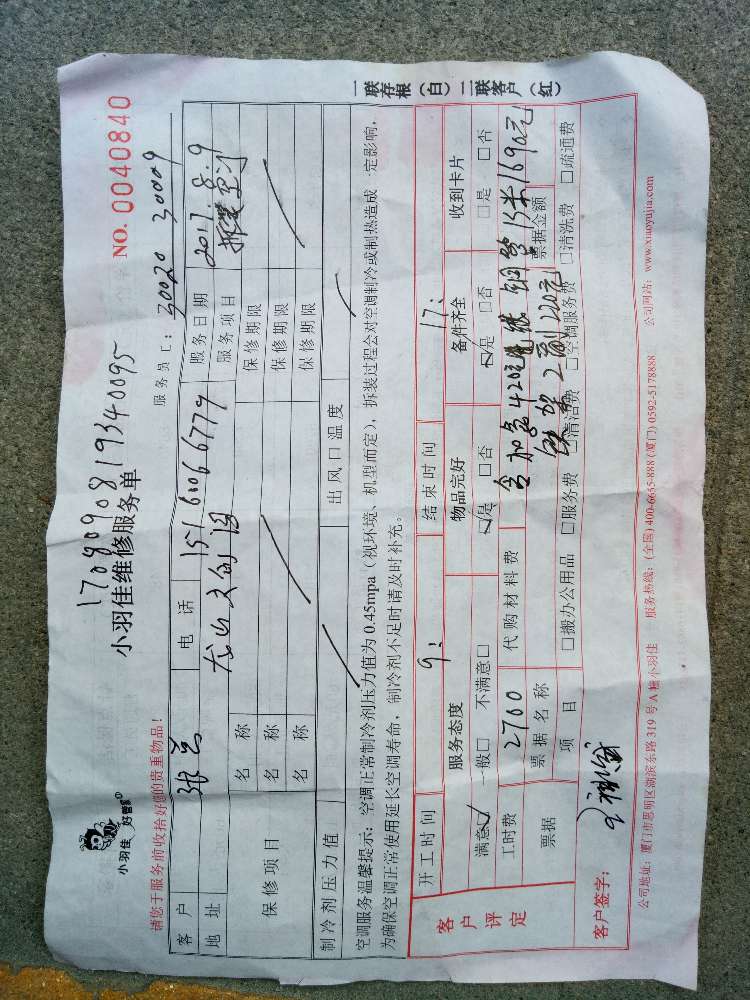 小羽佳 好管家
170809081934​0095
小羽佳维修服务单
NO. 0040840
请您于服务前收拾好您的贵重物品！
服务员工： 30020 30009
客户 电话 15160066779 服务日期 2017.8.9
地址 龙山文创园 服务项目 拆装空调
保修项目
名称 保修期限
名称 保修期限
名称 保修期限
制冷剂压力值 出风口温度
空调服务温馨提示：空调正常制冷剂压力值为0.45mpa（视环境、机型而定），拆装过程会对空调制冷或制热造成一定影响，
为确保空调正常使用延长空调寿命，制冷剂不足时请及时补充。
一联存根（白）二联客户（红）
客户评定
开工时间 9： 结束时间 17：
服务态度 物品完好 备件齐全 收到卡片
满意☑ 一般□ 不满意□ ☑是 □否 ☑是 □否 □是 □否
工时费 2700 代购材料费 含加氟420元 铜管13米1690元
票据 票据名称 票据金额
支架2副220元
项目 □搬办公用品 □服务费 □清洁费 □空调服务费 □清洗费 □疏通费
客户签字：
公司地址：厦门市思明区湖滨东路319号A幢小羽佳 服务热线：（全国）400-6655-888（厦门）0592-5178888 公司网站：www.xiaoyujia.com